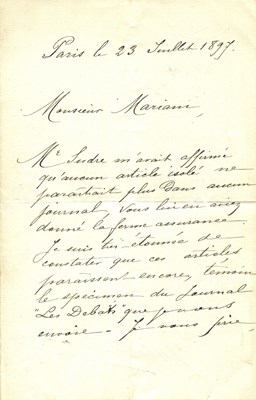 Paris le 23 Juillet 1897.
Monsieur Mariani,
Mr Sudre m'avait affirmé
qu'aucun article isolé ne
paraîtrait plus dans aucun
journal, vous lui en aviez
donné la ferme assurance.
Je suis très étonnée de
constater que ces articles
paraissent encore, témoin
le spécimen du Journal
"Les Débats" que je vous
envoie. Je vous prie